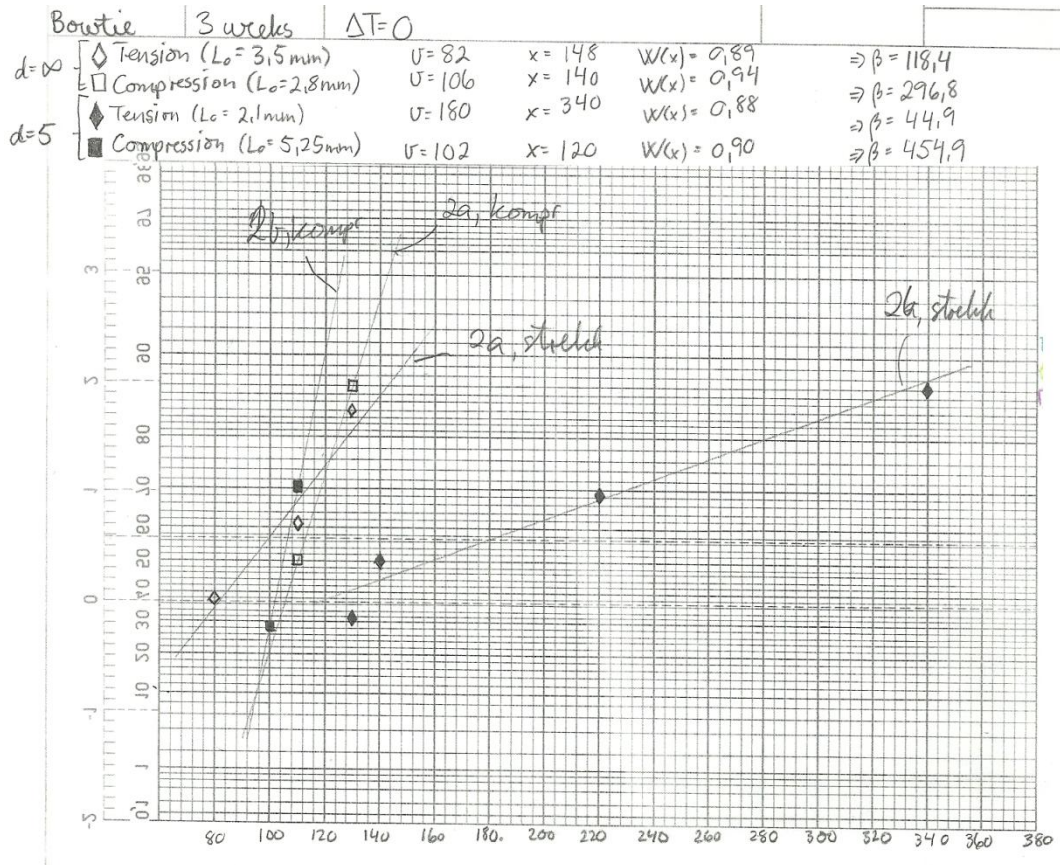 Bowtie 3 weeks ΔT=0
d=∞
◇ Tension (L₀= 3,5mm) υ=82 x= 148 W(x)= 0,89 ⇒ β= 118,4
□ Compression (L₀=2,8mm) υ=106 x= 140 W(x)= 0,94 ⇒ β= 296,8
d=5
◆ Tension (L₀= 2,1mm) υ=180 x= 340 W(x)= 0,88 ⇒ β= 44,9
■ Compression (L₀= 5,25mm) υ=102 x= 120 W(x)= 0,90 ⇒ β= 454,9
2b, kompr
2a, kompr
2a, strekk
2b, strekk
3
2
1
0
-1
-2
98
97
95
90
80
70
60
50
40
30
20
10
1
80 100 120 140 160 180. 200 220 240 260 280 300 320 340 360 380